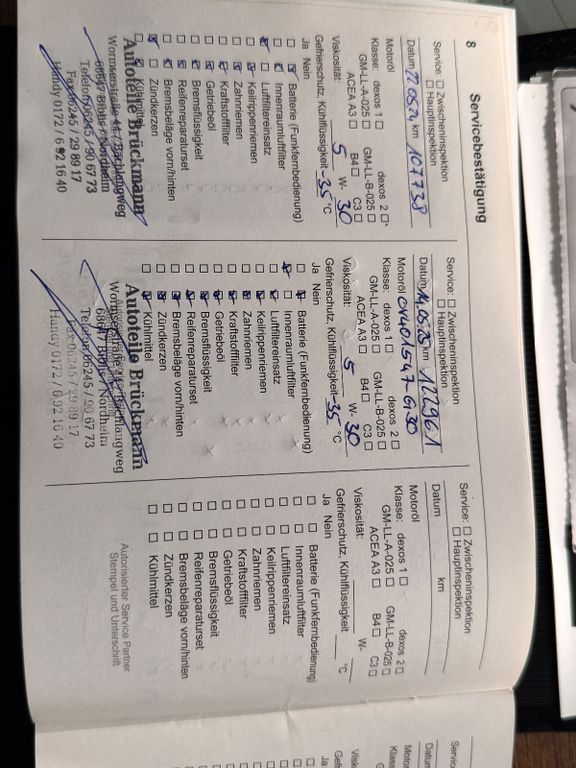 8
Servicebestätigung
Service: ☐ Zwischeninspektion
☐ Hauptinspektion
Datum 22.05.24 km 107738
Motoröl
Klasse: dexos 1 ☐ dexos 2 ☐
GM-LL-A-025 ☐ GM-LL-B-025 ☐
ACEA A3 ☐ B4 ☐ C3 ☐
Viskosität: 5 W- 30
Gefrierschutz, Kühlflüssigkeit -35 °C
Ja Nein
Batterie (Funkfernbedienung)
Innenraumluftfilter
Luftfiltereinsatz
Keilrippenriemen
Zahnriemen
Kraftstofffilter
Getriebeöl
Bremsflüssigkeit
Reifenreparaturset
Bremsbeläge vorn/hinten
Zündkerzen
Kühlmittel
Autoteile Brückmann
68647 Biblis / Nordheim
Telefon 06245 / 90 67 73
Fax 06245 / 29 89 17
Handy 0172 / 6 92 16 40
Service: ☐ Zwischeninspektion
☐ Hauptinspektion
Datum 14.05.25 km 122961
Motoröl
Klasse: dexos 1 ☐ dexos 2 ☐
GM-LL-A-025 ☐ GM-LL-B-025 ☐
ACEA A3 ☐ B4 ☐ C3 ☐
Viskosität: 5 W- 30
Gefrierschutz, Kühlflüssigkeit -35 °C
Ja Nein
Batterie (Funkfernbedienung)
Innenraumluftfilter
Luftfiltereinsatz
Keilrippenriemen
Zahnriemen
Kraftstofffilter
Getriebeöl
Bremsflüssigkeit
Reifenreparaturset
Bremsbeläge vorn/hinten
Zündkerzen
Kühlmittel
Autoteile Brückmann
68647 Biblis / Nordheim
Telefon 06245 / 90 67 73
Fax 06245 / 29 89 17
Handy 0172 / 6 92 16 40
Service: ☐ Zwischeninspektion
☐ Hauptinspektion
Datum km
Motoröl
Klasse: dexos 1 ☐ dexos 2 ☐
GM-LL-A-025 ☐ GM-LL-B-025 ☐
ACEA A3 ☐ B4 ☐ C3 ☐
Viskosität: W-
Gefrierschutz, Kühlflüssigkeit °C
Ja Nein
☐ ☐ Batterie (Funkfernbedienung)
☐ ☐ Innenraumluftfilter
☐ ☐ Luftfiltereinsatz
☐ ☐ Keilrippenriemen
☐ ☐ Zahnriemen
☐ ☐ Kraftstofffilter
☐ ☐ Getriebeöl
☐ ☐ Bremsflüssigkeit
☐ ☐ Reifenreparaturset
☐ ☐ Bremsbeläge vorn/hinten
☐ ☐ Zündkerzen
☐ ☐ Kühlmittel
Autorisierter Service Partner
Stempel und Unterschrift